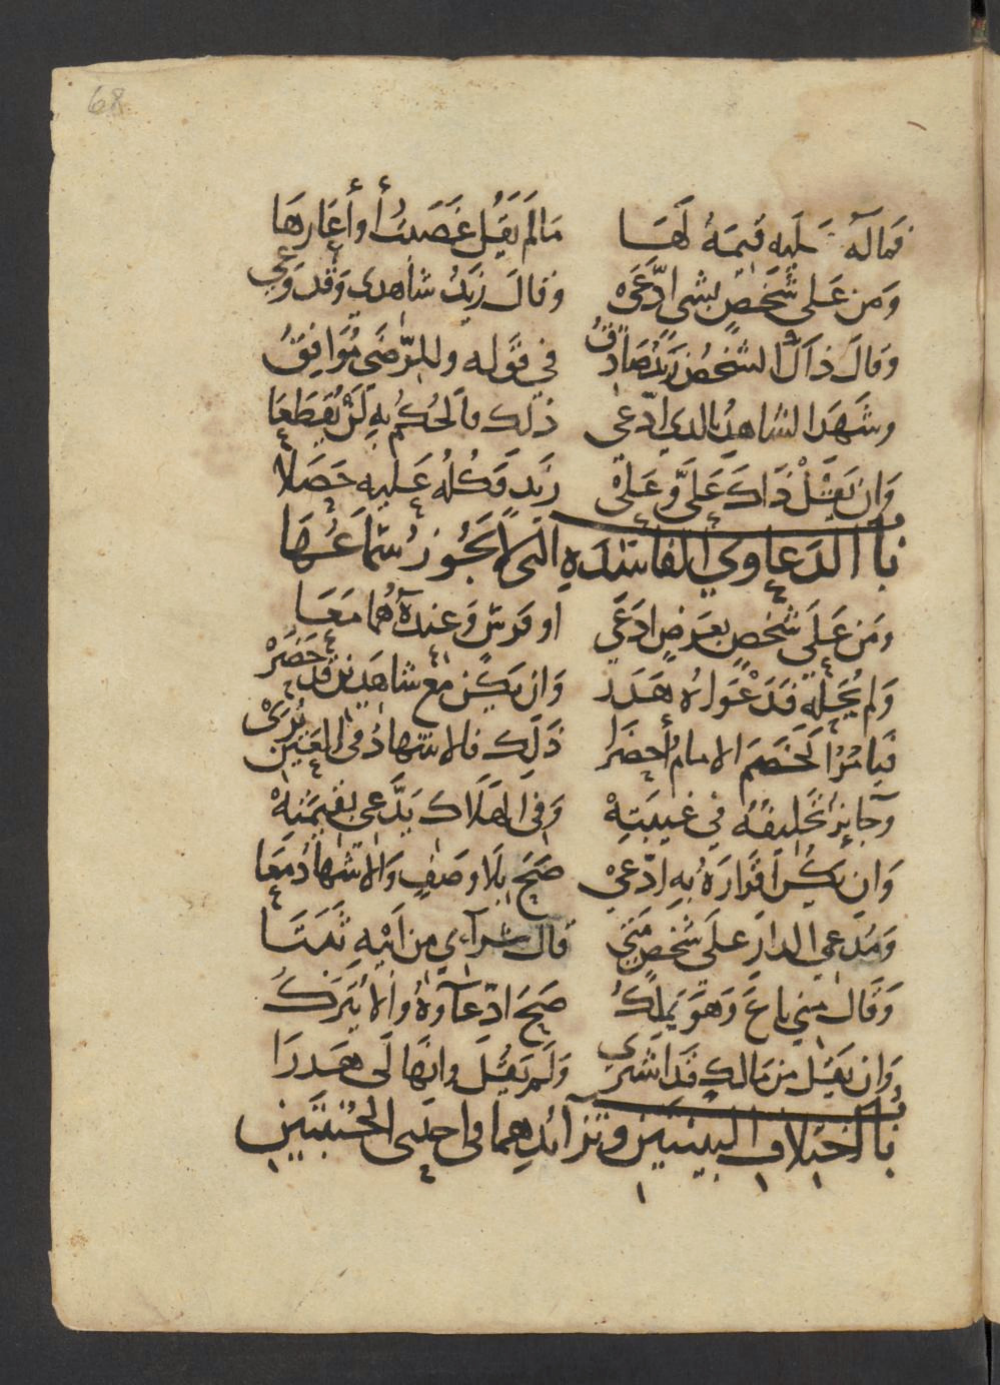 68
فماله عليه قيمة لها مالم يقل غصبت أو أعارها
ومن على شخص بشي ادّعى وقال زيد شاهدي وقد وعي
وقال ذاك الشخص زيد صادق في قوله وللرضى موافق
وشهد الشاهد بالذي ادّعى ذلك فالحكم به لن يقطعا
وان يقل ذاك عليّ وعلى زيد فكله عليه حصلا
باب الدعاوي الفاسدة التي لا يجوز سماعها
ومن على شخص بعرض ادعى او فرس وعنده هما معا
ولم يحله فدعواه هدر وان يكن مع شاهدين قد حضر
فيامر الخصم الامام أحضرا ذلك فالاشهاد في العين يرى
وجايز تحليفه في غيبته وفي الهلاك يدّعي بقيمته
وان يكن اقراره به ادّعي صح بلا وصف والاشهاد معا
ومدعي الدار على شخص متى قال شرآي من ابيه ثبتا
وقال مني باع وهو يملك صح ادّعآوه والا يترك
وان يقل من مالك قد اشترى ولم يقل وانها لي هدرا
باب اختلاف البينتين وتزآئدهما في احدى الجنبتين